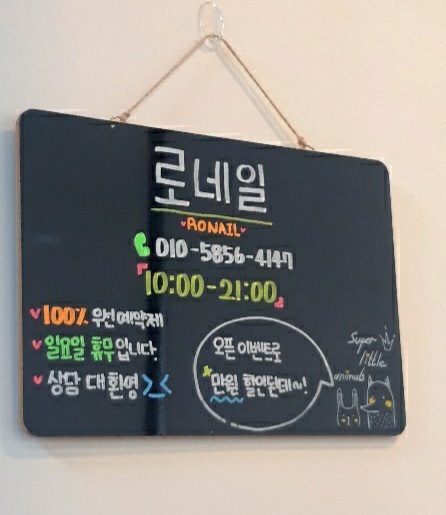 로네일
RONAIL
010-5856-4147
10:00-21:00
100% 우선예약제
일요일 휴무입니다.
상담 대환영 >.<
오픈 이벤트로
만원 할인된데~!
Super
little
animals